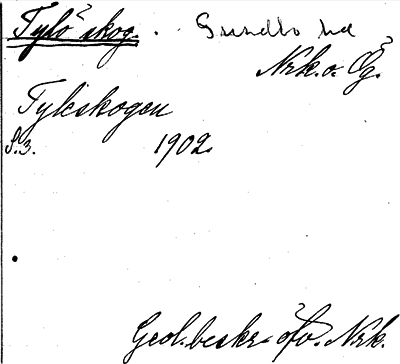 Tylö skog. Sundbo hd
Nrk. o. Ög.
Tylöskogen
S. 3. 1902.
Geol. beskr. öfv. Nrk.